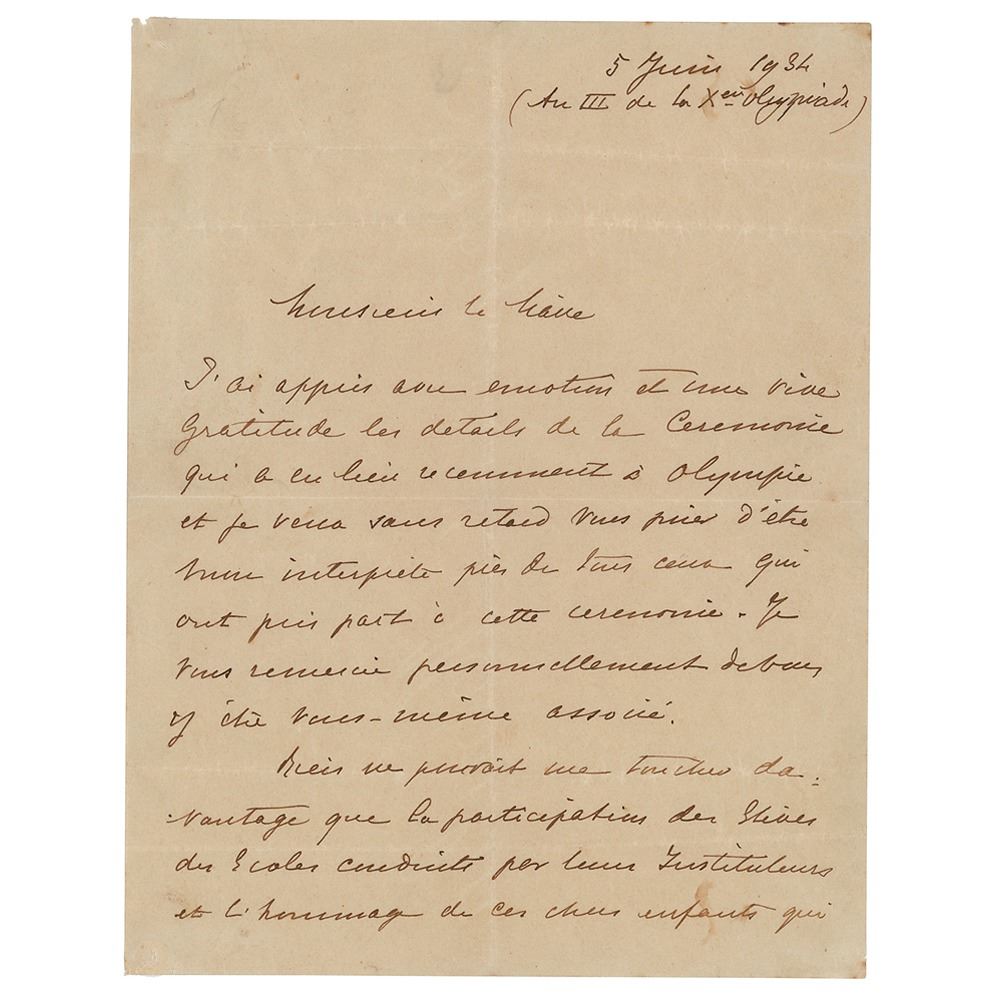 5 Juin 1934
(An III de la Xème Olympiade)
Monsieur le Maire
J'ai appris avec emotion et une vive
gratitude les details de la Ceremonie
qui a eu lieu recemment à Olympie
et je viens sans retard vous prier d'être
mon interprete près de tous ceux qui
ont pris part à cette ceremonie. Je
vous remercie personnellement de vous
y être vous-même associé.
Rien ne pouvait me toucher da-
vantage que la participation des Elèves
des Ecoles conduits par leurs Instituteurs
et l'hommage de ces chers enfants qui